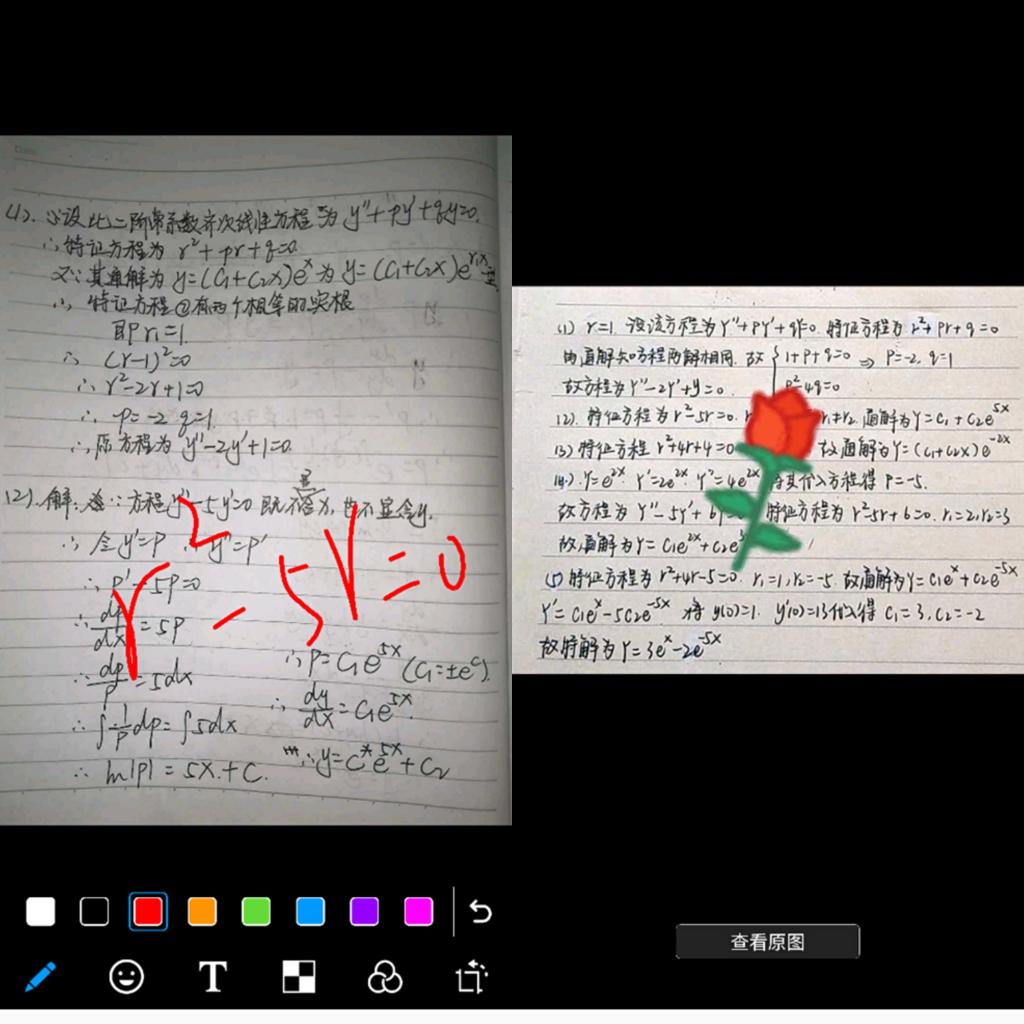 (1). ∵设此二阶常系数齐次线性方程为 y''+py'+qy=0.
∴特征方程为 r²+pr+q=0
又∵其通解为 y=(C₁+C₂x)eˣ为 y=(C₁+C₂x)e^{r₁x}型
∴ 特征方程 有两个相等的实根
即 r₁=1.
∴ (r-1)²=0
∴ r²-2r+1=0
∴ p=-2 q=1.
∴原方程为 y''-2y'+1=0.
(2). 解: ∵方程y''-5y'=0 既不显含x, 也不显含y.
∴ 令y'=p ∴ y''=p'
∴ p'-5p=0
∴ dp/dx=5p
∴ dp/p=5dx
∴ ∫1/p dp=∫5dx
∴ ln|p|=5x+C.
∴ p=C₁e^{5x} (C₁=±e^c).
∴ dy/dx=C₁e^{5x}.
∴ y=C*e^{5x}+C₂
r²-5r=0
(1) r=1 设该方程为 y''+py'+qy=0. 特征方程为 r²+pr+q=0
由通解知方程两解相同. 故 {1+p+q=0 ⇒ p=-2, q=1
故方程为 y''-2y'+y=0. p²-4q=0
(2). 特征方程为 r²-5r=0. r₁≠r₂. 通解为 y=C₁+C₂e^{5x}
(3) 特征方程 r²+4r+4=0 故通解为 y=(C₁+C₂x)e^{-2x}
(4). y=e^{2x} y'=2e^{2x} y''=4e^{2x} 将其代入方程得 p=-5.
故方程为 y''-5y'+6y=0 特征方程为 r²-5r+6=0. r₁=2, r₂=3
故通解为 y=C₁e^{2x}+C₂e
(5) 特征方程为 r²+4r-5=0. r₁=1, r₂=-5. 故通解为 y=C₁eˣ+C₂e^{-5x}
y'=C₁eˣ-5C₂e^{-5x} 将 y(0)=1. y'(0)=13代入得 C₁=3, C₂=-2
故特解为 y=3eˣ-2e^{-5x}
T
查看原图